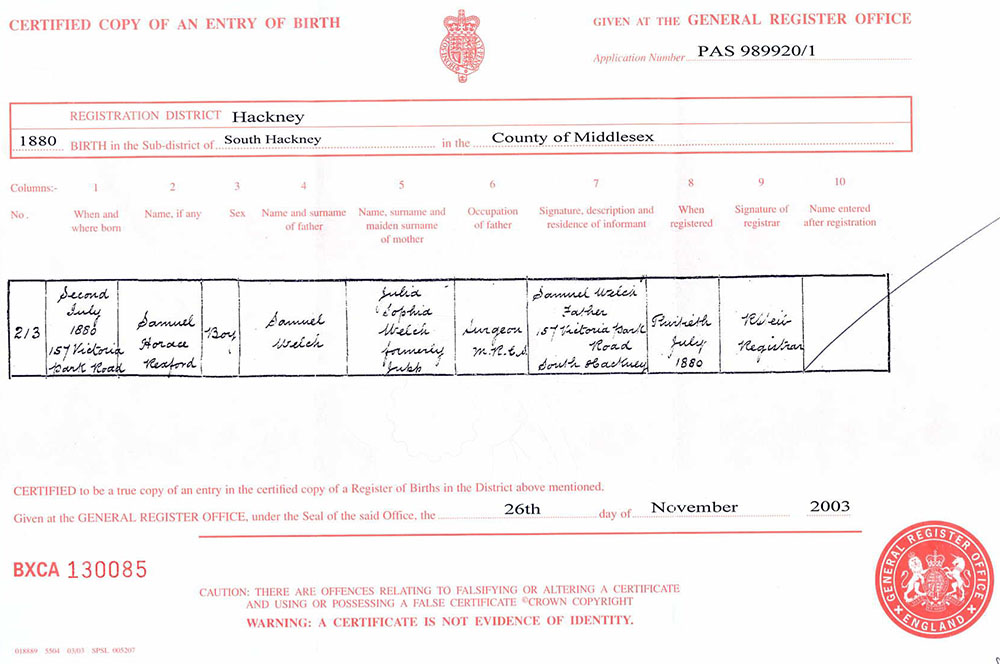 CERTIFIED COPY OF AN ENTRY OF BIRTH
GIVEN AT THE GENERAL REGISTER OFFICE
Application Number PAS 989920/1
REGISTRATION DISTRICT Hackney
1880 BIRTH in the Sub-district of South Hackney in the County of Middlesex
Columns:- 1 2 3 4 5 6 7 8 9 10
No. When and where born Name, if any Sex Name and surname of father Name, surname and maiden surname of mother Occupation of father Signature, description and residence of informant When registered Signature of registrar Name entered after registration
213
Second
July
1880
157 Victoria
Park Road
Samuel
Horace
Rexford
Boy
Samuel
Welch
Julia
Sophia
Welch
formerly
Jupp
Surgeon
M.R.C.S.
Samuel Welch
Father
157 Victoria Park
Road
South Hackney
Thirtieth
July
1880
Registrar
CERTIFIED to be a true copy of an entry in the certified copy of a Register of Births in the District above mentioned.
Given at the GENERAL REGISTER OFFICE, under the Seal of the said Office, the 26th day of November 2003
BXCA 130085
CAUTION: THERE ARE OFFENCES RELATING TO FALSIFYING OR ALTERING A CERTIFICATE
AND USING OR POSSESSING A FALSE CERTIFICATE ©CROWN COPYRIGHT
WARNING: A CERTIFICATE IS NOT EVIDENCE OF IDENTITY.
GENERAL REGISTER OFFICE
ENGLAND
018889 5504 03/03 SPSL 005207